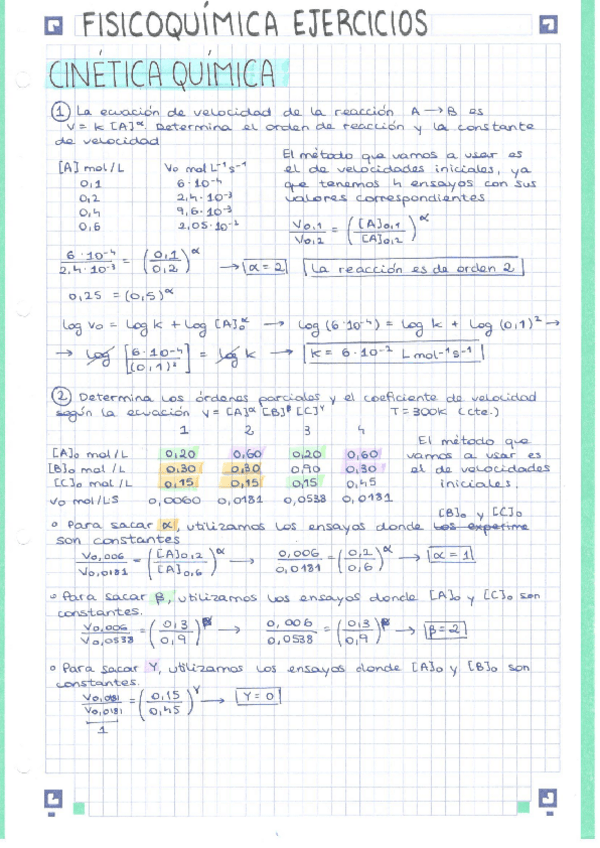 FISICOQUÍMICA EJERCICIOS
CINÉTICA QUÍMICA
① La ecuación de velocidad de la reacción A → B es
V = k [A]ᵅ. Determina el orden de reacción y la constante
de velocidad
[A] mol/L Vo mol L⁻¹s⁻¹
0,1 6·10⁻⁴
0,2 2,4·10⁻³
0,4 9,6·10⁻³
0,6 2,05·10⁻²
El método que vamos a usar es
el de velocidades iniciales, ya
que tenemos 4 ensayos con sus
valores correspondientes.
Vo,1 / Vo,2 = ([A]o,1 / [A]o,2)ᵅ
6·10⁻⁴ / 2,4·10⁻³ = (0,1 / 0,2)ᵅ → α = 2 La reacción es de orden 2
0,25 = (0,5)ᵅ
log Vo = log k + log [A]oᵅ → log (6·10⁻⁴) = log k + log (0,1)² →
→ log [6·10⁻⁴ / (0,1)²] = log k → k = 6·10⁻² L mol⁻¹s⁻¹
② Determina los órdenes parciales y el coeficiente de velocidad
según la ecuación V = [A]ᵅ [B]ᵝ [C]ᵞ T = 300K (cte.)
1 2 3 4
[A]o mol/L 0,20 0,60 0,20 0,60
[B]o mol/L 0,30 0,30 0,90 0,30
[C]o mol/L 0,15 0,15 0,15 0,45
Vo mol/LS 0,0060 0,0181 0,0538 0,0181
El método que
vamos a usar es
el de velocidades
iniciales.
[B]o y [C]o
° Para sacar α, utilizamos los ensayos donde los experime
son constantes
Vo,006 / Vo,0181 = ([A]o,2 / [A]o,6)ᵅ 0,006 / 0,0181 = (0,2 / 0,6)ᵅ → α = 1
° Para sacar β, utilizamos los ensayos donde [A]o y [C]o son
constantes.
Vo,006 / Vo,0538 = (0,3 / 0,9)ᵝ → 0,006 / 0,0538 = (0,3 / 0,9)ᵝ → β = 2
° Para sacar γ, utilizamos los ensayos donde [A]o y [B]o son
constantes.
Vo,0181 / Vo,0181 = (0,15 / 0,45)ᵞ → γ = 0
1